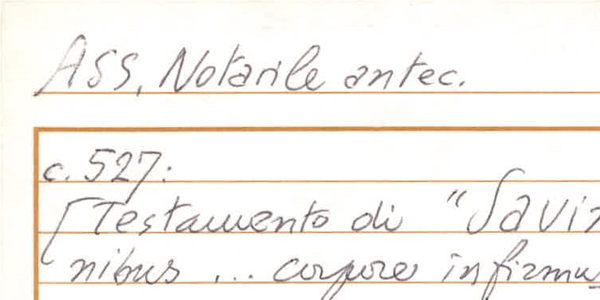 ASS, Notarile antec.
c. 527:
[Testamento di "Savi
nibus ... corpore infirmu